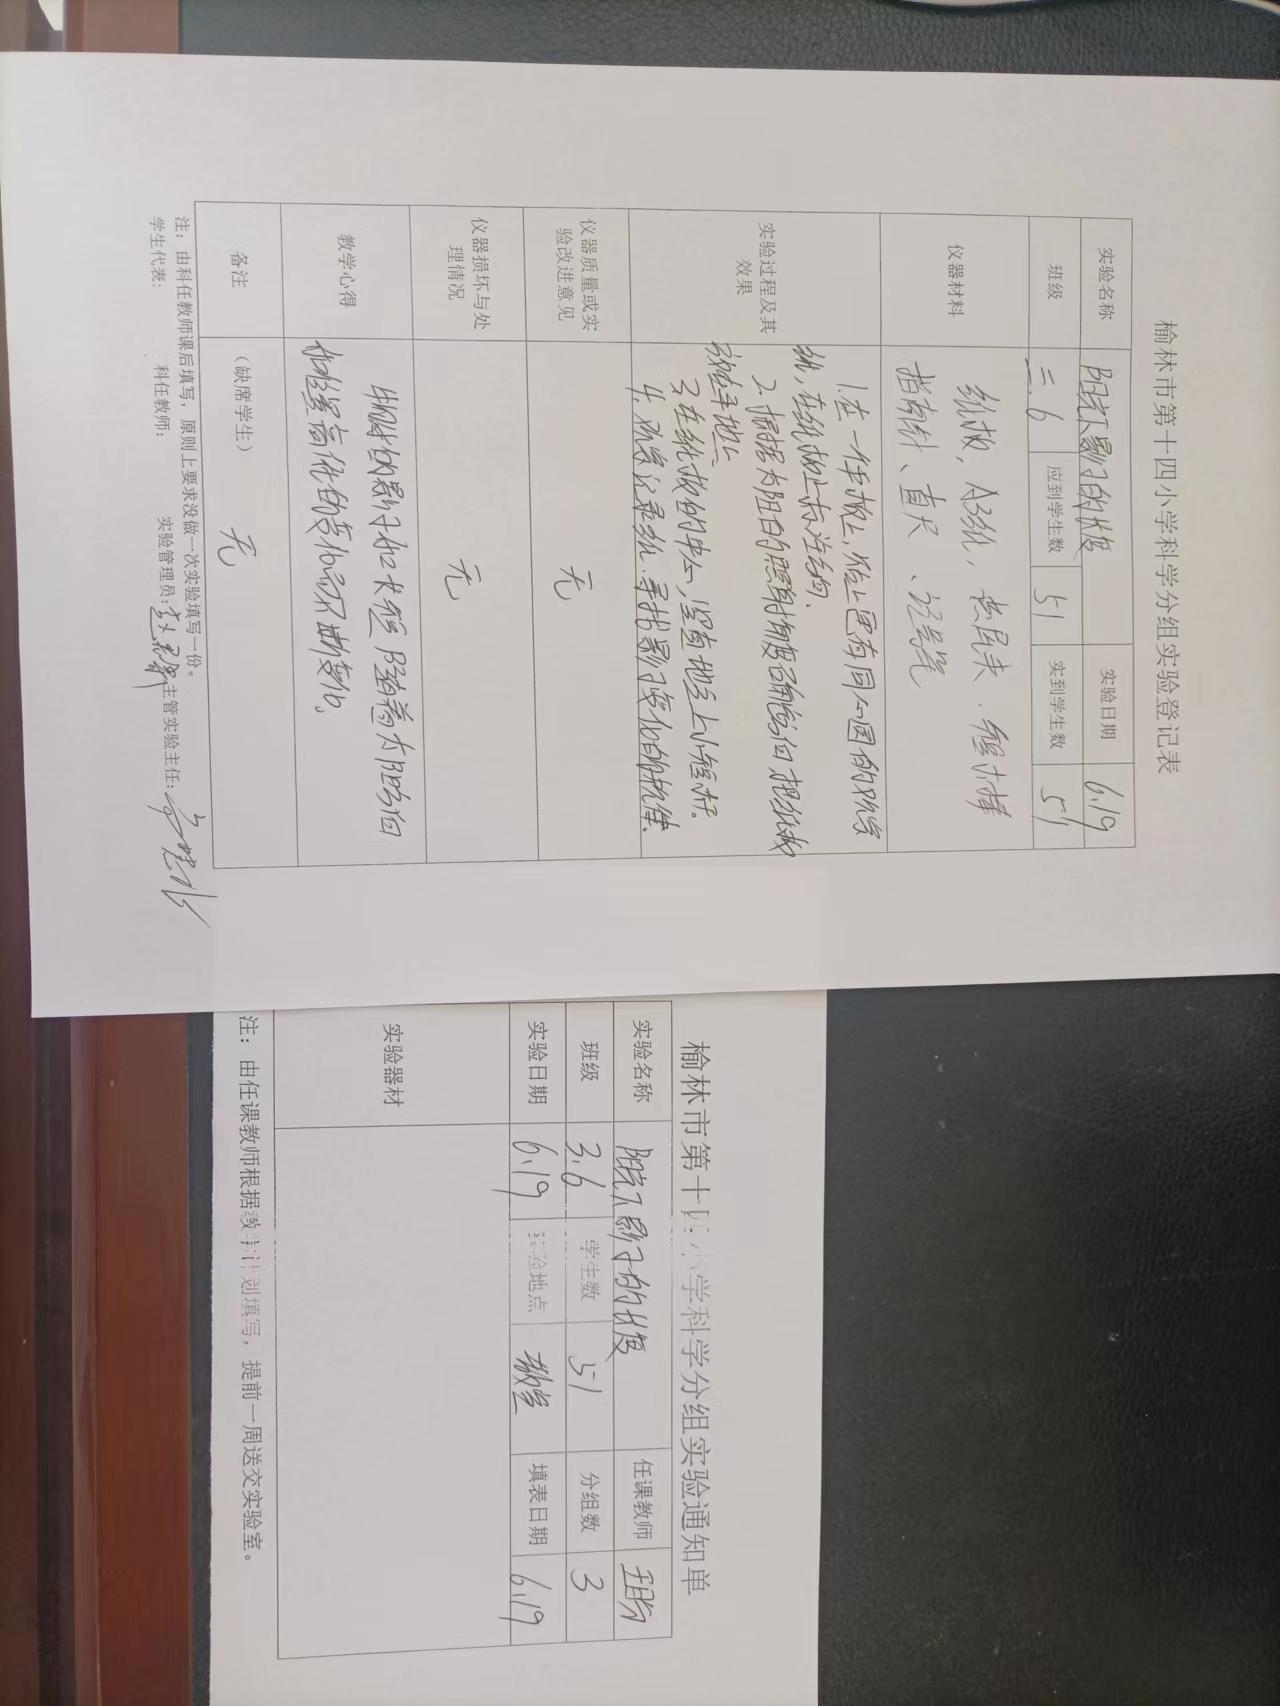 榆林市第十四小学科学分组实验登记表
实验名称 阳光下影子的长度 实验日期 6.19
班级 三.6 应到学生数 51 实到学生数 51
仪器材料 纸板,A3纸,金属夹.短木棒
指南针、直尺、记号笔
实验过程及其效果 1.在一个纸板上,贴上画有同心圆的观察
纸,在纸板上标注结构、
2.根据太阳的照射角度确定方向把纸板
放在平地上
3.在纸板的中心,竖直地立上小短杆。
4.观察记录纸.寻找影子变化的规律.
仪器质量或实验改进意见 无
仪器损坏与处理情况 无
教学心得 物体的影子和长短随着太阳方向
和位置高低的变化而不断变化。
备注 (缺席学生) 无
注:由科任教师课后填写,原则上要求没做一次实验填写一份。
学生代表: 科任教师: 实验管理员: 主管实验主任:
榆林市第十四小学科学分组实验通知单
实验名称 阳光下影子的长度 任课教师
班级 3.6 学生数 51 分组数 3
实验日期 6.19 实验地点 教室 填表日期 6.19
实验器材
注:由任课教师根据教学计划填写,提前一周送交实验室。